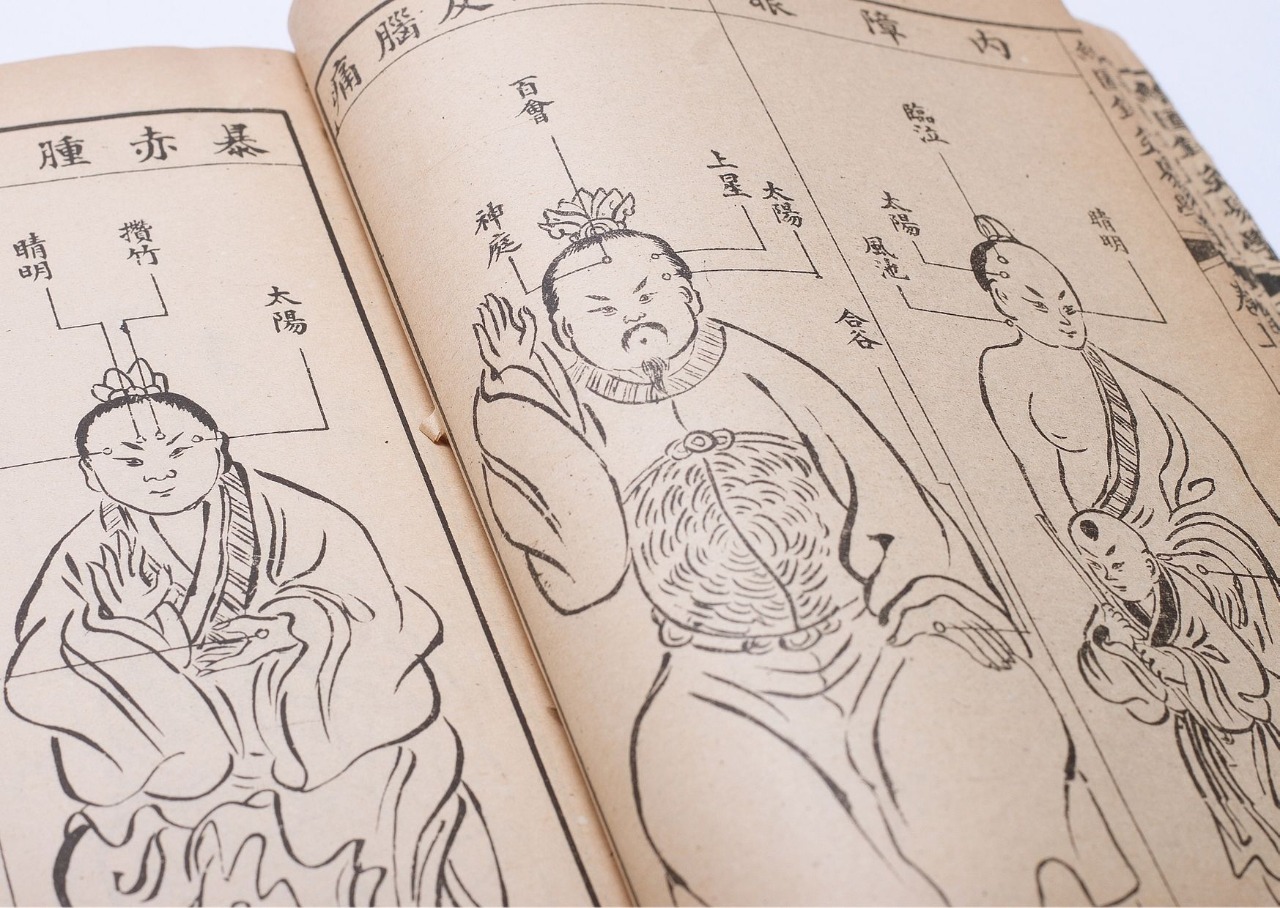 內障眼
臨泣
睛明
太陽
風池
及腦痛
百會
上星
太陽
神庭
合谷
暴赤腫
太陽
攢竹
睛明